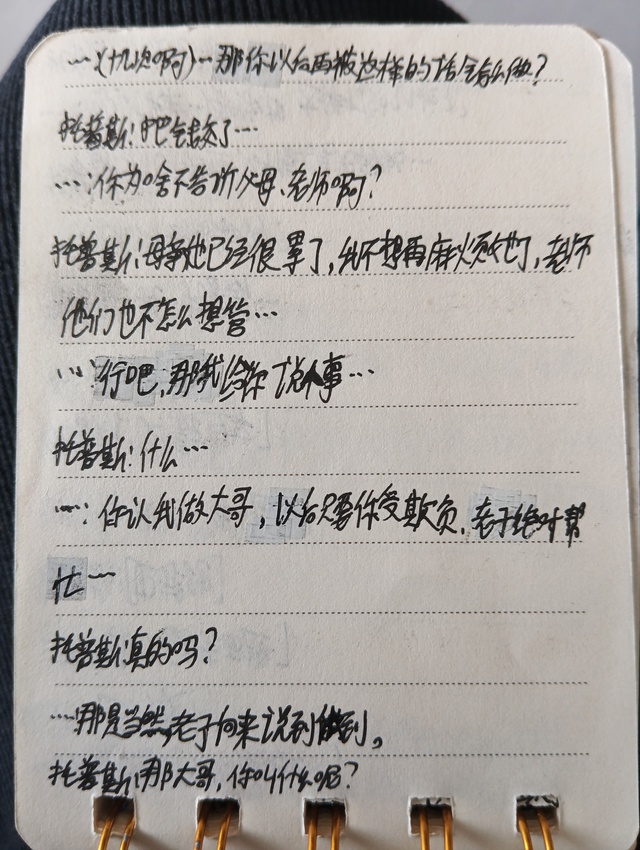 …（叹次啊）…那你以后再被这样的话会怎么做？
托普斯：把它转交了…
…：你为啥不告诉父母、老师啊？
托普斯：母亲她已经很累了，我不想再麻烦她了，老师
他们也不怎么想管…
…：行吧，那我给你说个事…
托普斯：什么…
…：你认我做大哥，以后只要你受欺负，老子绝对帮
忙…
托普斯：真的吗？
…那是当然，老子向来说到做到。
托普斯：那大哥，你叫什么呢？